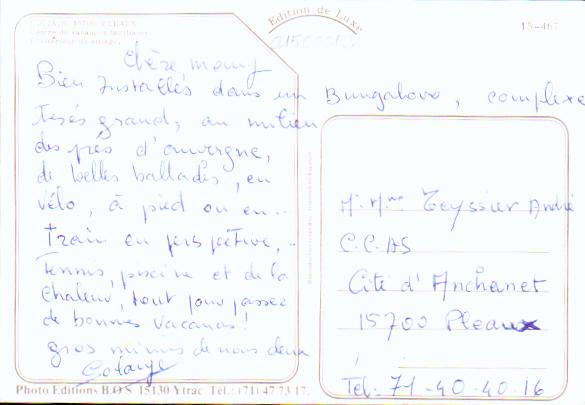 C.C.A.S. 15700 PLEAUX
Centre de vacances familiales.
Edition de Luxe
15-467
Chère mamy
Bien Installés dans un Bungalove, complexe
Très grand, au milieu
des prés d'auvergne,
de belles ballades, en
vélo, à pied ou en...
Train en perspective,..
Tennis, piscine et de la
Chaleur, tout pour passer
de bonnes vacances!
gros mimis de nous deux
Mr Mme Teyssier André
C.C.AS
Cité d'Anchanet
15700 Pleaux
Tel: 71-40-40-16
Photo Editions B.O.S 15130 Ytrac Tél.: (71) 47 73 17.